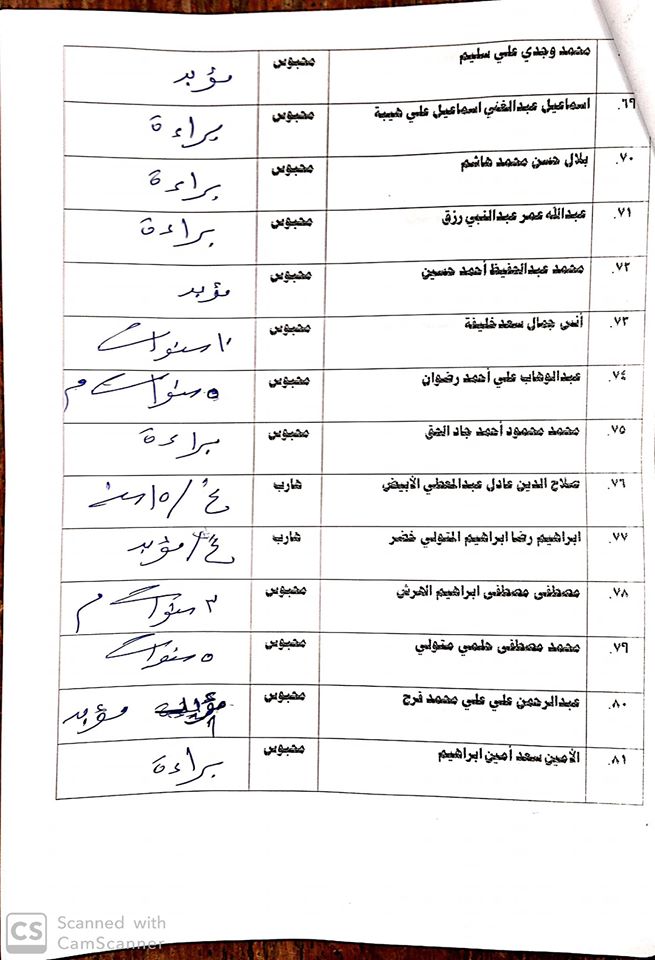 محمد وجدي علي سليم محبوس مؤبد
٦٩. اسماعيل عبدالغني اسماعيل علي هيبة محبوس براءة
٧٠. بلال حسن محمد هاشم محبوس براءة
٧١. عبدالله عمر عبدالنبي رزق محبوس براءة
٧٢. محمد عبدالحفيظ أحمد حسين محبوس مؤبد
٧٣. أنس جمال سعد خليفة محبوس ١٠ سنوات
٧٤. عبدالوهاب علي أحمد رضوان محبوس ٥ سنوات م
٧٥. محمد محمود أحمد جاد الحق محبوس براءة
٧٦. صلاح الدين عادل عبدالمعطي الأبيض هارب غ / ١٥ سنة
٧٧. ابراهيم رضا ابراهيم المتولي خضر هارب غ / مؤبد
٧٨. مصطفى مصطفى ابراهيم الهرش محبوس ٣ سنوات م
٧٩. محمد مصطفى حلمي متولي محبوس ٥ سنوات
٨٠. عبدالرحمن علي علي محمد فرج محبوس مؤبد
٨١. الأمين سعد أمين ابراهيم محبوس براءة
CS Scanned with
CamScanner